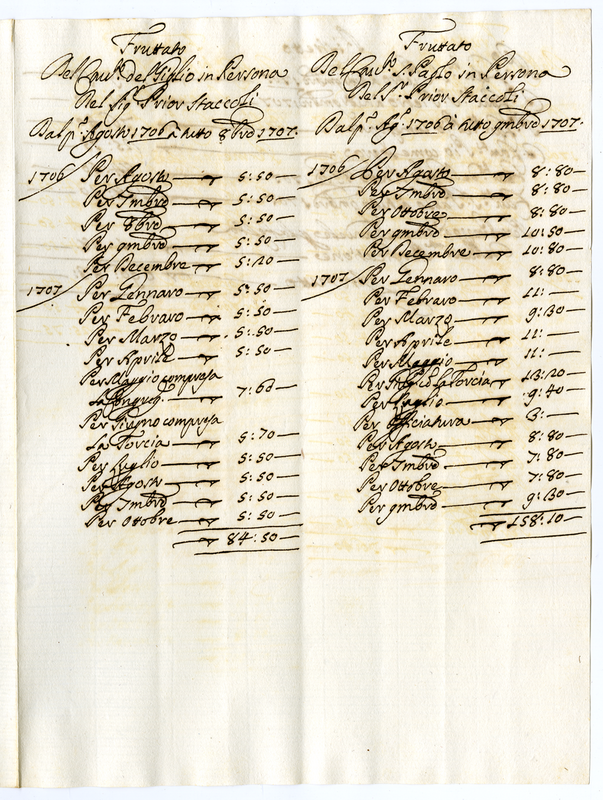 Fruttato
Del Quart.º del Giglio in Persona
Del Sig.r Prior Staccoli
Dal p.º Agosto 1706 à tutto 8bre 1707.
1706 Per Agosto 5:50
Per 7mbre 5:50
Per 8bre 5:50
Per 9mbre 5:50
Per Decembre 5:20
1707 Per Gennaro 5:50
Per Febraro 5:50
Per Marzo 5:50
Per Aprile 5:50
Per Maggio compresa
7:60
Per Giugno compresa
La Torcia 5:70
Per Luglio 5:50
Per Agosto 5:50
Per 7mbre 5:50
Per Ottobre 5:50
84:50
Fruttato
Del S. Paolo in Persona
Del S.r Prior Staccoli
Dal p.º Ag.º 1706 à tutto 9mbre 1707.
1706 Per Agosto 8:80
Per 7mbre 8:80
Per Ottobre 8:80
Per 9mbre 10:50
Per Decembre 10:80
1707 Per Gennaro 8:80
Per Febraro 11:
Per Marzo 9:30
Per Aprile 11:
Per Maggio 11:
Per La Torcia 13:20
Per Luglio 9:40
Per Officiatura 3:
Per Agosto 8:80
Per 7mbre 7:80
Per Ottobre 7:80
Per 9mbre 9:30
158:10